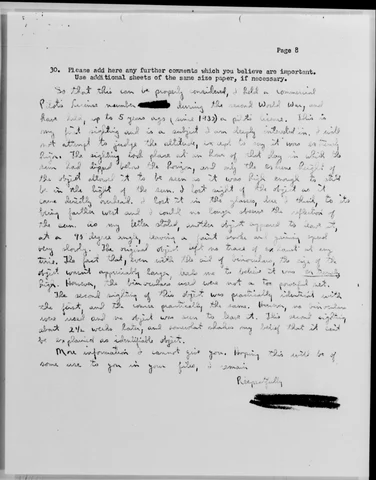 Page 8
30. Please add here any further comments which you believe are important.
Use additional sheets of the same size paper, if necessary.
So that this can be properly considered, I held a commercial
Pilots License number during the second World War, and
have held, up to 5 years ago (since 1933) a private license. This is
my first sighting and is a subject I am deeply interested in, I will
not attempt to judge the altitude, except to say it was extremely
high. The sighting took place at an hour of that day in which the
sun had dipped below the horizon, and only the extreme height of
the object allowed it to be seen as it was high enough to still
be in the light of the sun. I lost sight of the object as it
came directly overhead. I lost it in the glasses, due I think, to its
being further west and I could no longer observe the reflection of
the sun. As my letter stated, another object appeared to leave it,
at a 45 degree angle, leaving a faint smoke and moving
very slowly. The original object left no trace of exhaust at any
time. The fact that, even with the aid of binoculars, the size of the
object wasn't appreciably larger, leads me to believe it was extremely
high. However, the binoculars used were not a too powerful set.
The second sighting of this object was practically identical with
the first, and the course practically the same. However, no binoculars
were used and no object was seen to leave it. This second sighting
about 2½ weeks later, and somewhat shakes my belief that it can't
be explained as identifiable object.
More information I cannot give you. Hoping this will be of
some use to you in your files, I remain
Respectfully